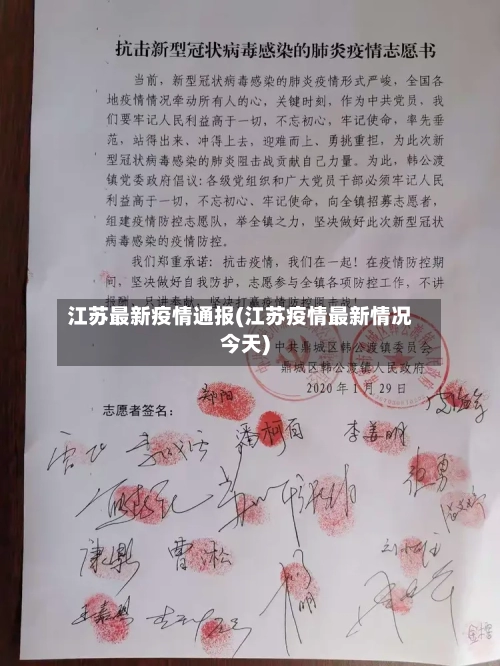 抗击新型冠状病毒感染的肺炎疫情志愿书
当前，新型冠状病毒感染的肺炎疫情形式严峻，全国各
地疫情情况牵动所有人的心，关键时刻，作为中共党员，我
们要牢记人民利益高于一切，不忘初心，牢记使命，率先垂
范，站得出来、冲得上去，迎难而上、勇挑重担，为此次新
型冠状病毒感染的肺炎阻击战贡献自己力量。为此，韩公渡
镇党委政府倡议:各级党组织和广大党员干部必须牢记人民
利益高于一切，不忘初心、牢记使命，向全镇招募志愿者，
组建疫情防控志愿队，举全镇之力，坚决做好此次新型冠状
病毒感染的疫情防控。
我们郑重承诺：抗击疫情，我们在一起！在疫情防控期
间，坚决做好自我防护，志愿参与全镇各项防控工作，不讲
报酬，只讲奉献，坚决打赢疫情防控阻击战！
江苏最新疫情通报(江苏疫情最新情况
今天)
中共鼎城区韩公渡镇委员会
鼎城区韩公渡镇人民政府
2020年1月29日
志愿者签名：
郑阳
潘柯百
李姜明
张勇
康鼎
曹松